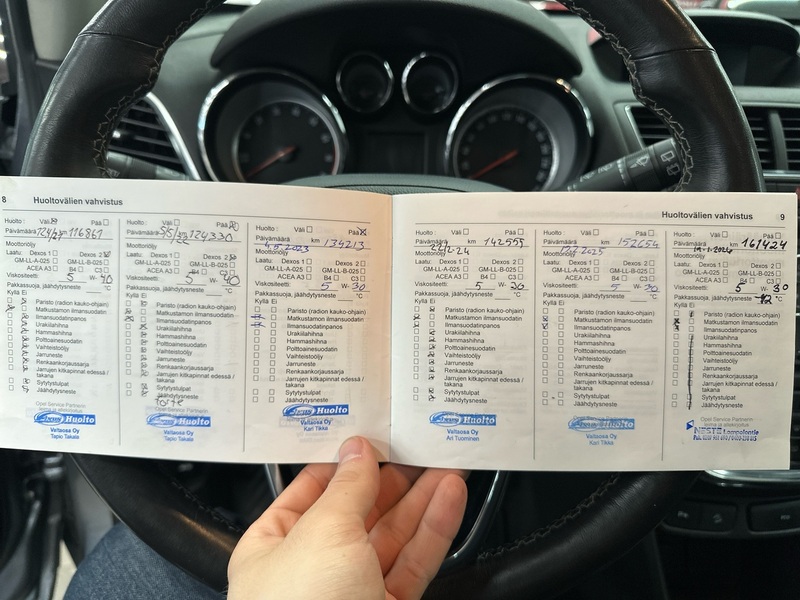 8 Huoltovälien vahvistus
Huolto: Väli Pää
Päivämäärä km 116861
Moottoriöljy
Laatu: Dexos 1 Dexos 2
GM-LL-A-025 GM-LL-B-025
ACEA A3 B4 C3
Viskositeetti: 5 W- 40
Pakkassuoja, jäähdytysneste °C
Kyllä Ei
Paristo (radion kauko-ohjain)
Matkustamon ilmansuodatin
Ilmansuodatinpanos
Urakiilahihna
Hammashihna
Polttoainesuodatin
Vaihteistoöljy
Jarruneste
Renkaankorjaussarja
Jarrujen kitkapinnat edessä / takana
Sytytystulpat
Jäähdytysneste
Opel Service Partnerin
leima ja allekirjoitus
Huolto
Valtaosa Oy
Tapio Takala
Huolto: Väli Pää
Päivämäärä km 124330
Moottoriöljy
Laatu: Dexos 1 Dexos 2
GM-LL-A-025 GM-LL-B-025
ACEA A3 B4 C3
Viskositeetti: 5 W- 40
Pakkassuoja, jäähdytysneste °C
Kyllä Ei
Paristo (radion kauko-ohjain)
Matkustamon ilmansuodatin
Ilmansuodatinpanos
Urakiilahihna
Hammashihna
Polttoainesuodatin
Vaihteistoöljy
Jarruneste
Renkaankorjaussarja
Jarrujen kitkapinnat edessä /
takana
Sytytystulpat
Jäähdytysneste
Opel Service Partnerin
Huolto
Valtaosa Oy
Tapio Takala
Huolto: Väli Pää
Päivämäärä 4.5.2023 km 134213
Moottoriöljy
Laatu: Dexos 1 Dexos 2
GM-LL-A-025 GM-LL-B-025
ACEA A3 B4 C3
Viskositeetti: 5 W- 30
Pakkassuoja, jäähdytysneste °C
Kyllä Ei
Paristo (radion kauko-ohjain)
Matkustamon ilmansuodatin
Ilmansuodatinpanos
Urakiilahihna
Hammashihna
Polttoainesuodatin
Vaihteistoöljy
Jarruneste
Renkaankorjaussarja
Jarrujen kitkapinnat edessä /
takana
Sytytystulpat
Jäähdytysneste
Huolto
Valtaosa Oy
Kari Tikka
Huoltovälien vahvistus 9
Huolto: Väli Pää
Päivämäärä km 142555
Moottoriöljy
Laatu: Dexos 1 Dexos 2
GM-LL-A-025 GM-LL-B-025
ACEA A3 B4 C3
Viskositeetti: 5 W- 30
Pakkassuoja, jäähdytysneste °C
Kyllä Ei
Paristo (radion kauko-ohjain)
Matkustamon ilmansuodatin
Ilmansuodatinpanos
Urakiilahihna
Hammashihna
Polttoainesuodatin
Vaihteistoöljy
Jarruneste
Renkaankorjaussarja
Jarrujen kitkapinnat edessä /
takana
Sytytystulpat
Jäähdytysneste
Opel Service Partnerin
Huolto
Valtaosa Oy
Ari Tuominen
Huolto: Väli Pää
Päivämäärä km 152654
Moottoriöljy
Laatu: Dexos 1 Dexos 2
GM-LL-A-025 GM-LL-B-025
ACEA A3 B4 C3
Viskositeetti: 5 W- 30
Pakkassuoja, jäähdytysneste °C
Kyllä Ei
Paristo (radion kauko-ohjain)
Matkustamon ilmansuodatin
Ilmansuodatinpanos
Urakiilahihna
Hammashihna
Polttoainesuodatin
Vaihteistoöljy
Jarruneste
Renkaankorjaussarja
Jarrujen kitkapinnat edessä /
takana
Sytytystulpat
Jäähdytysneste
Opel Service Partnerin
Huolto
Valtaosa Oy
Kari Tikka
Huolto: Väli Pää
Päivämäärä km 161424
Moottoriöljy
Laatu: Dexos 1 Dexos 2
GM-LL-A-025 GM-LL-B-025
ACEA A3 B4 C3
Viskositeetti: 5 W- 30
Pakkassuoja, jäähdytysneste °C
Kyllä Ei
Paristo (radion kauko-ohjain)
Matkustamon ilmansuodatin
Ilmansuodatinpanos
Urakiilahihna
Hammashihna
Polttoainesuodatin
Vaihteistoöljy
Jarruneste
Renkaankorjaussarja
Jarrujen kitkapinnat edessä /
takana
Sytytystulpat
Jäähdytysneste
Opel Service Partnerin
leima ja allekirjoitus
NESTE